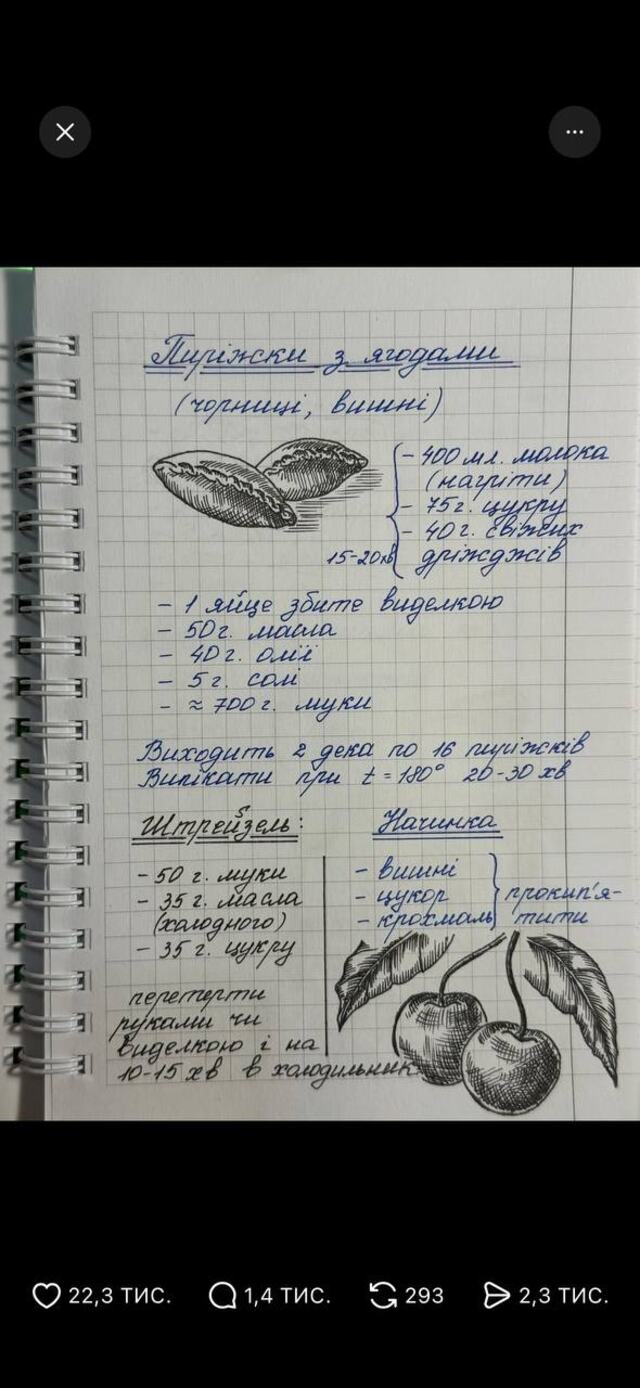 Пиріжски з ягодами
(чорниці, вишні)
- 400 мл. молока
(нагріти)
- 75 г. цукру
- 40 г. свіжих
15-20 хв дріжджів
- 1 яйце збите виделкою
- 50 г. масла
- 40 г. олії
- 5 г. солі
- ≈ 700 г. муки
Виходить 2 дека по 16 пиріжків
Випікати при t = 180° 20-30 хв
Штрейзель:
s
- 50 г. муки
- 35 г. масла
(холодного)
- 35 г. цукру
перетерти
руками чи
виделкою і на
10-15 хв в холодильник.
Начинка
- вишні
- цукор
- крохмаль
прокип'я-
тити
22,3 ТИС.
1,4 ТИС.
293
2,3 ТИС.